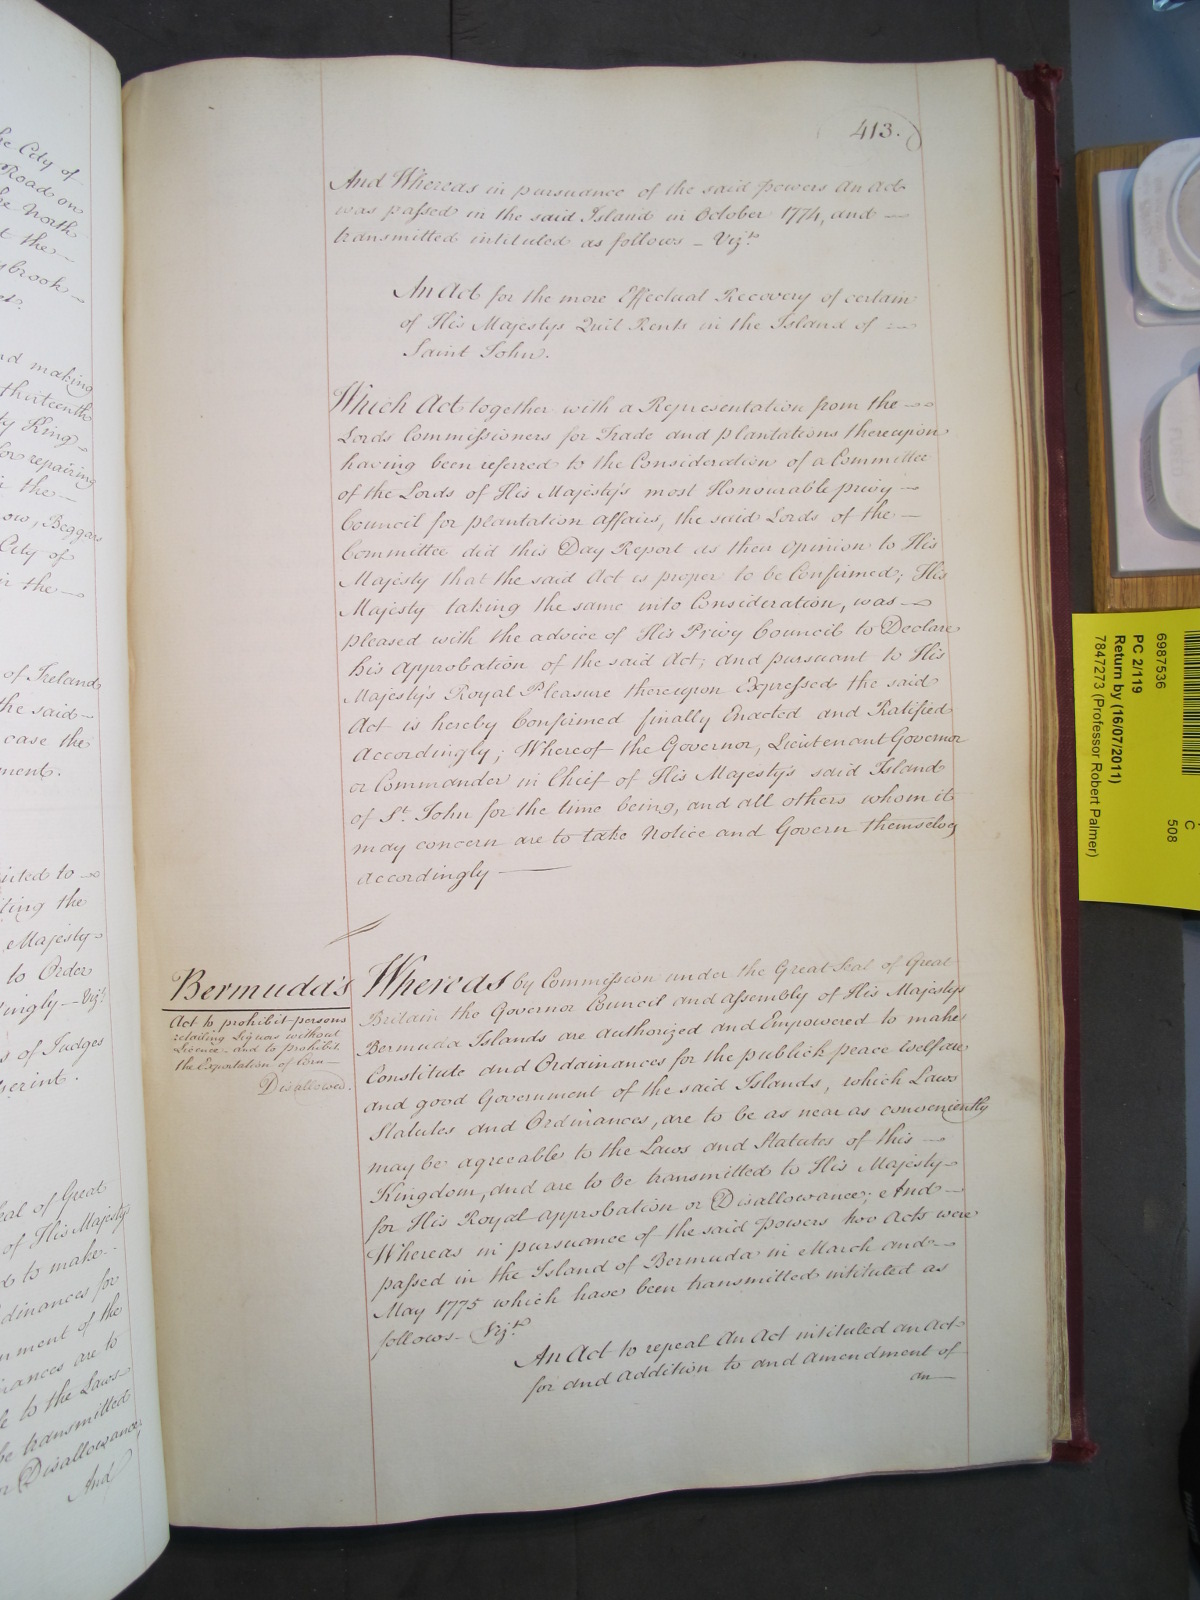 he City of
Road on
he North
t the
sbrook
nd making
thirteenth
ty King
for repairing
the
ow, Beggars
City of
in the
of Ireland
the said
case the
ment.
to
ting the
Majesty
to Order
ingly – Vizt.
s of Judges
eal of Great
of His Majesty's
to make
dinances for
nment of the
inances are to
le to the Laws
be transmitted
or Disallowance;
And
413.
And Whereas in pursuance of the said powers an Act
was passed in the said Island in October 1774, and
transmitted intituled as follows – Vizt.
An Act for the more Effectual Recovery of certain
of His Majestys Quit Rents in the Island of
Saint John.
Which Act together with a Representation from the
Lords Commissioners for Trade and plantations thereupon
having been referred to the Consideration of a Committee
of the Lords of His Majesty's most Honourable privy
Council for plantation affairs, the said Lords of the
Committee did this Day Report as their opinion to His
Majesty that the said Act is proper to be Confirmed; His
Majesty taking the same into Consideration, was
pleased with the advice of His Privy Council to Declare
his approbation of the said Act; and pursuant to His
Majesty's Royal Pleasure thereupon Expressed the said
Act is hereby Confirmed finally Enacted and Ratified
accordingly; Whereof the Governor, Lieutenant Governor
or Commander in Chief of His Majesty's said Island
of St. John for the time being, and all others whom it
may concern are to take Notice and Govern themselves
accordingly
Bermuda's
Act to prohibit persons
retailing Liquors without
Licence – and to prohibit
the Exportation of Corn –
Disallowed.
Whereas by Commission under the Great Seal of Great
Britain the Governor Council and assembly of His Majestys
Bermuda Islands are authorized and Empowered to make
Constitute and Ordainances for the publick peace Welfare
and good Government of the said Islands, which Laws
Statutes and Ordinances, are to be as near as conveniently
may be agreeable to the Laws and Statutes of this
Kingdom, and are to be transmitted to His Majesty
for His Royal approbation or Disallowance; And
Whereas in pursuance of the said powers two Acts were
passed in the Island of Bermuda in March and
May 1775 which have been transmitted intituled as
follows – Vizt.
An Act to repeal An Act intituled an Act
for and addition to and amendment of
an
6987536
PC 2/119
Return by (16/07/2011)
7847273 (Professor Robert Palmer)
C
508